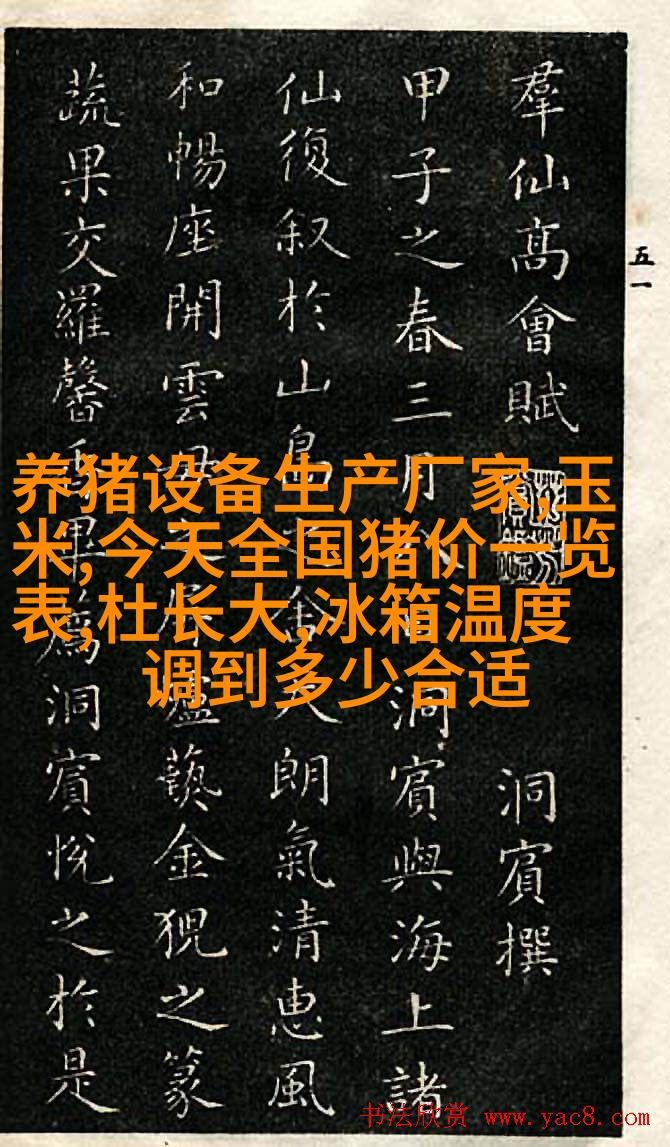 羣仙髙會賦
洞賓撰
甲子之春三月日洞賓與海上諸
仙復叙於山島之舍天朗氣清恵風
和暢座開雲母之藝金猊之篆
蔬果交羅馨香畢薦洞賓悅之於是
五一
养猪设备生产厂家,玉
米,今天全国猪价一览
表,杜长大,冰箱温度
调到多少合适
书法欣赏 www.yac8.com